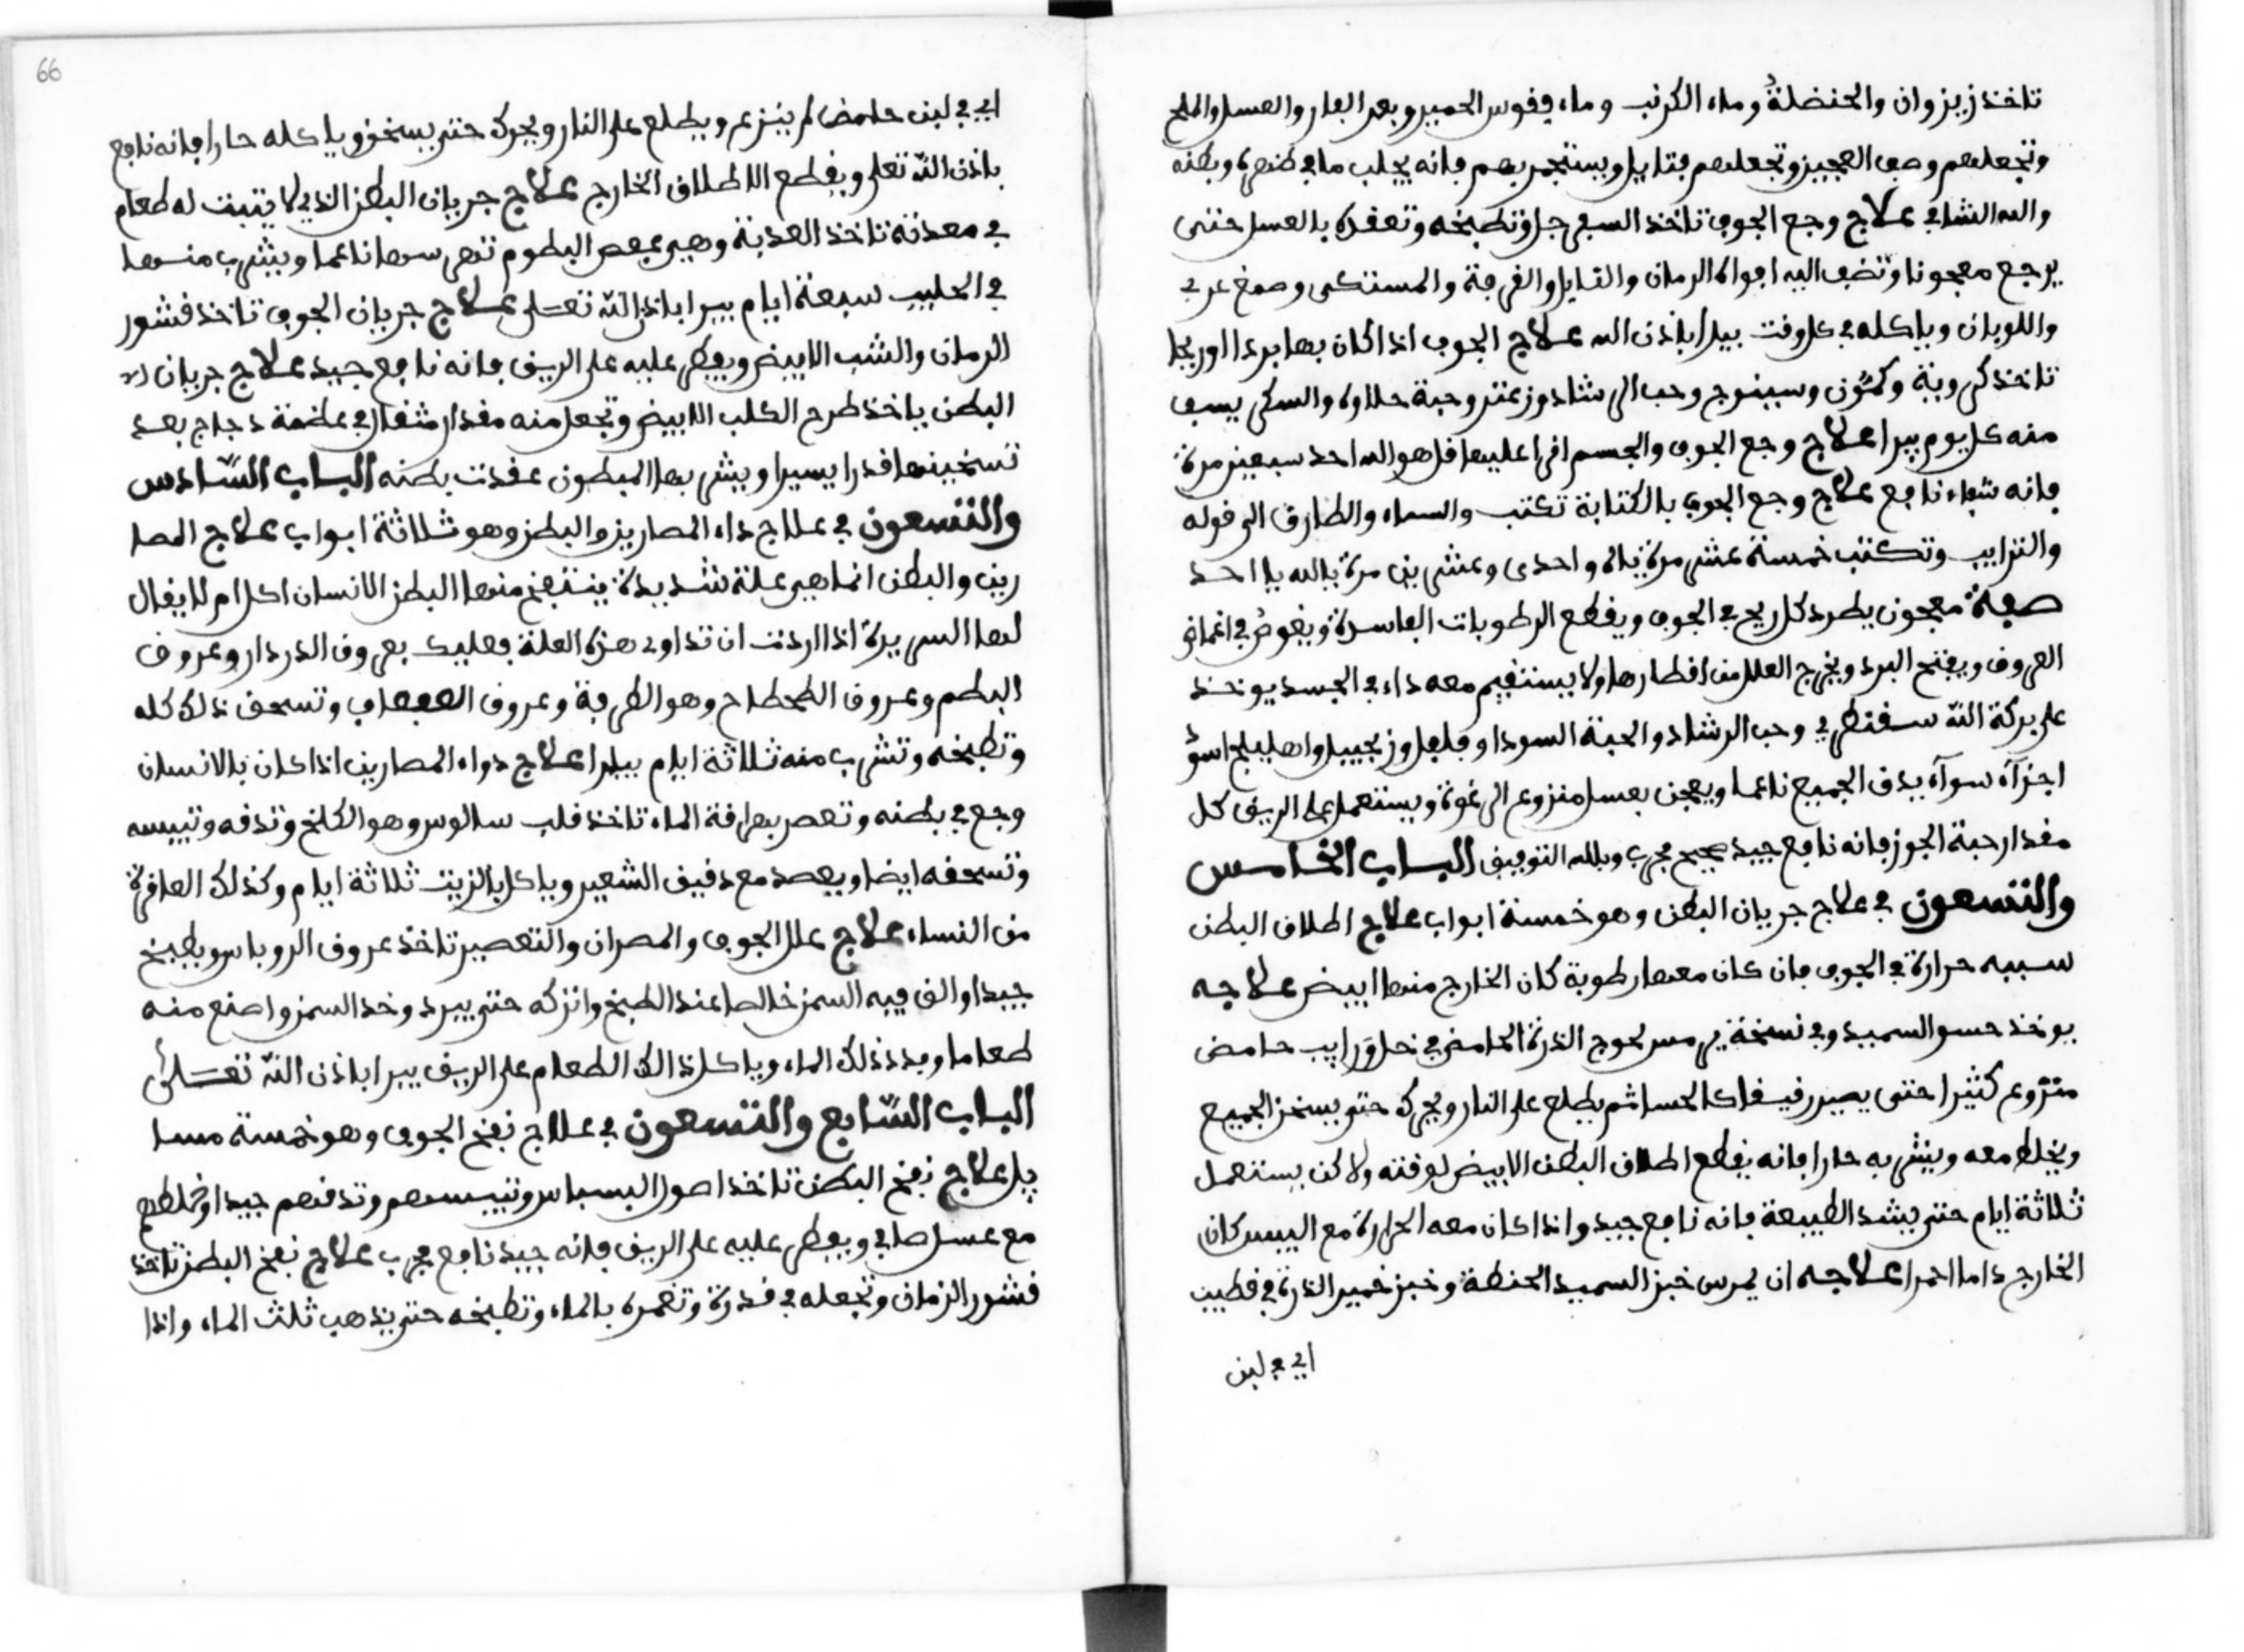 تاخذ زيزوان والحنضلة وماء الكرنب وماء فقوس الحمير وبعر الفار والعسل والملح
وتجعلهم وصف العجين وتجعلهم فتايل ويستجمر بهم فانه يجلب ما في ظهره وبطنه
والله الشافي علاج وجع الجوف تاخذ السفرجل وتطبخه وتعقده بالعسل حتى
يرجع معجونا وتضف اليه افواه الرمان والقرفة والمستكى وصمغ عربي
واللوبان وياكله في كل وقت يبرا باذن الله علاج الجوف اذا كان بها بردا او ريحا
تاخذ كروية وكمون وسينوج وحب الرشاد وزعتر وحبة حلاوة والسكر يسف
منه كل يوم يبرا علاج وجع الجوف والجسم اقرا عليها قل هو الله احد سبعين مرة
فانه شفاء نافع علاج وجع الجوف بالكتابة تكتب والسماء والطارق الى قوله
والترايب وتكتب خمسة عشر مرة ياه واحدى وعشرين مرة يا الله يا احد
صفة معجون يطرد كل ريح في الجوف ويقطع الرطوبات الفاسدة ويغوص في اغماق
العروق ويفتح البرد ويخرج العلل من اقطارها ولا يستقيم معه داء في الجسد يوخذ
على بركة الله سقنطري وحب الرشاد والحبة السودا وفلفل وزنجبيل واهليلج اسود
اجزاء سواء يدق الجميع ناعما ويعجن بعسل منزوع الرغوة ويستعمل على الريق كل
مقدار حبة الجوز فانه نافع جيد صحيح مجرب وبالله التوفيق الباب الخامس
والتسعون في علاج جريان البطن وهو خمسة ابواب علاج اطلاق البطن
سببه حرارة في الجوف فان كان معها رطوبة كان الخارج منها ابيض علاجه
يوخذ حسو السميد وفي نسخة الذرة الحامض في رايب حامض
منزوع كثيرا حتى يصير رقيقا كالحسا ثم يطلع على النار ويحرك حتى يسخن الجميع
ويخلط معه ويشربه حارا فانه يقطع اطلاق البطن الابيض لوقته ولاكن يستعمل
ثلاثة ايام حتى يشد الطبيعة فانه نافع جيد واذا كان معه الحرارة مع اليبس كان
الخارج داما احمرا علاجه ان يمرس خبز السميد الحنطة وخبز خمير الذرة
اي في لبن
اي في لبن حامض لم ينزع ويطلع على النار ويحرك حتى يسخن وياكله حارا فانه نافع
باذن الله تعلى ويقطع الاطلاق الخارج علاج جريان البطن الذي لا يثبت له طعام
في معدته تاخذ العذبة وهي بعص البطوم ناعما ويشرب منها
في الحليب سبعة ايام يبرا باذن الله تعلى علاج جريان الجوف تاخذ قشور
الرمان والشب الابيض ويفطر عليه على الريق فانه نافع جيد علاج جريان
البطن ياخذ طرح الكلب الابيض وتجعل منه مقدار مثقال في عظمة دجاج بعد
تسخينها قدرا يسيرا ويشربها المبطون عقدت بطنه الباب السادس
والتسعون في علاج داء المصارين والبطن وهو ثلاثة ابواب علاج المصا
رين والبطن انما هي علة شديدة ينتفخ منها البطن الانسان يقال
لها السريرة اذا اردت ان تداوي هذه العلة فعليك بعروق الدردار وعروق
البطم وعروق الطحطاح وهو الطرفة وعروق وتسحق ذلك كله
وتطبخه وتشرب منه ثلاثة ايام يبرا علاج دواء المصارين اذا كان بالانسان
وجع في بطنه وتعصر بها رقة الماء تاخذ قلب سالوس وهو الكلخ وتدقه وتيبسه
وتسحقه ايضا ويعصد مع دقيق الشعير وياكل بالزيت ثلاثة ايام وكذلك العاقرة
من النساء علاج علل الجوف والمصران والتعصير تاخذ عروق الروباس ويطبخ
جيدا والق فيه السمن خالصا عند الطبخ واتركه حتى يبرد وخد السمن واصنع منه
طعاما وبدد ذلك الماء وياكل ذالك الطعام على الريق يبرا باذن الله تعلى
الباب السابع والتسعون في علاج نفخ الجوف وهو خمسة مسا
يل علاج نفخ البطن تاخذ اصول البسباس وتيبسهم وتدقهم جيدا وتخلطهم
مع عسل صافي ويفطر عليه على الريق فانه جيد نافع مجرب علاج نفخ البطن تاخذ
قشور الرمان وتجعله في قدرة وتغمره بالماء وتطبخه حتى يذهب ثلث الماء واذا
66